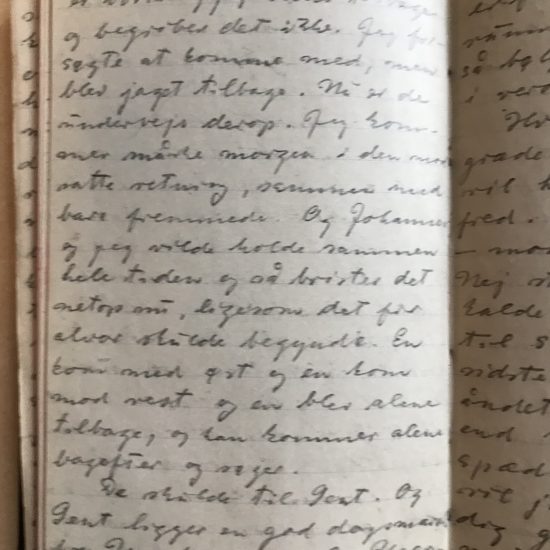 og begriber det ikke. Jeg for-
søgte at komme med, men
blev jaget tilbage. Nu er de
undervejs derop. Jeg kom-
mer måske morgen i den mod
satte retning, sammen med
bare fremmede. Og Johannes
og jeg vilde holde sammen
hele tiden og så brister det
netop nu, ligesom det for
alvor skulde begynde. En
kom med øst og en kom
mod vest og en blev alene
tilbage, og han kommer alene
bagefter og søger.
De skulde til Gent. Og
Gent ligger en god dagsmarch
så
i
grade
vil
fred.
Nej
kalde
til s
sidste
åndet
end
spæd
vil j
dig